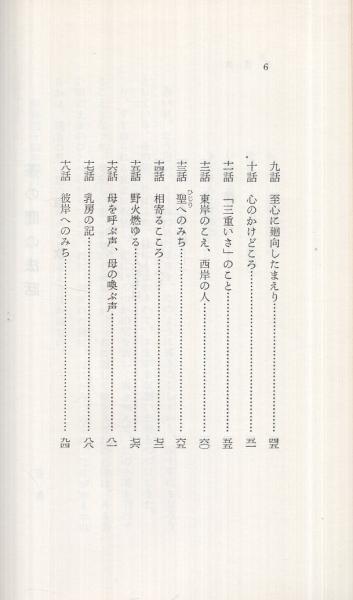 6
九話 至心に廻向したまえり……………………四五
十話 心のかけどころ……………………五一
十一話 「三重いさ」のこと……………………五五
十二話 東岸のこえ、西岸の人……………………六〇
十三話 聖へのみち……………………六五
ひじり
十四話 相寄るこころ……………………七二
十五話 野火燃ゆる……………………七六
十六話 母を呼ぶ声、母の喚ぶ声……………………八一
十七話 乳房の記……………………八八
十八話 彼岸へのみち……………………九四